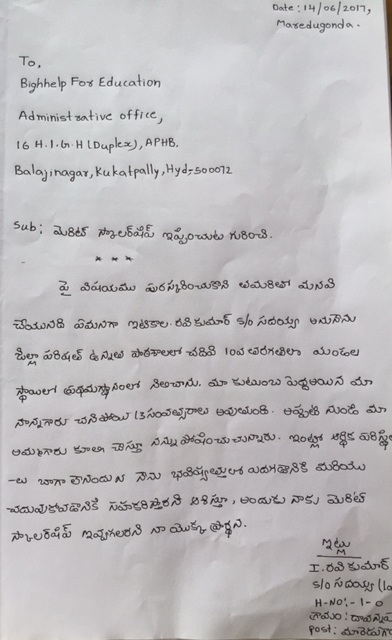 Date: 14/06/2017,
Maredugonda.
To,
Bighhelp For Education
Administrative office,
16 H.I.G.H (Duplex), APHB.
Balajinagar, Kukatpally, Hyd-500072
Sub: మెరిట్ స్కాలర్‌షిప్ ఇప్పించుట గురించి.
* * *
పై విషయము పురస్కరించుకొని తమరితో మనవి
చేయునది ఏమనగా ఇటికాల రవి కుమార్ s/o సదయ్య అనునేను
జిల్లా పరిషత్ ఉన్నత పాఠశాలలో చదివి 10వ తరగతిలో మండల
స్థాయిలో ప్రథమస్థానంలో నిలిచాను. మా కుటుంబ పెద్దఅయిన మా
నాన్నగారు చనిపోయి 13 సంవత్సరాలు అవుతుంది. అప్పటి నుండి మా
అమ్మగారు కూలి చేస్తూ నన్ను పోషించుచున్నారు. ఇంట్లో ఆర్థిక పరిస్థి
-లు బాగా లేనందున నేను భవిష్యత్తులో ఎదగడానికి మరియు
చదువుకోవడానికి సహకరిస్తారని ఆశిస్తూ, అందుకు నాకు మెరిట్
స్కాలర్‌షిప్ ఇవ్వగలరని నా యొక్క ప్రార్థన.
ఇట్లు
I. రవి కుమార్
s/o సదయ్య (la
H-No:- 1-0
గ్రామం:
Post: